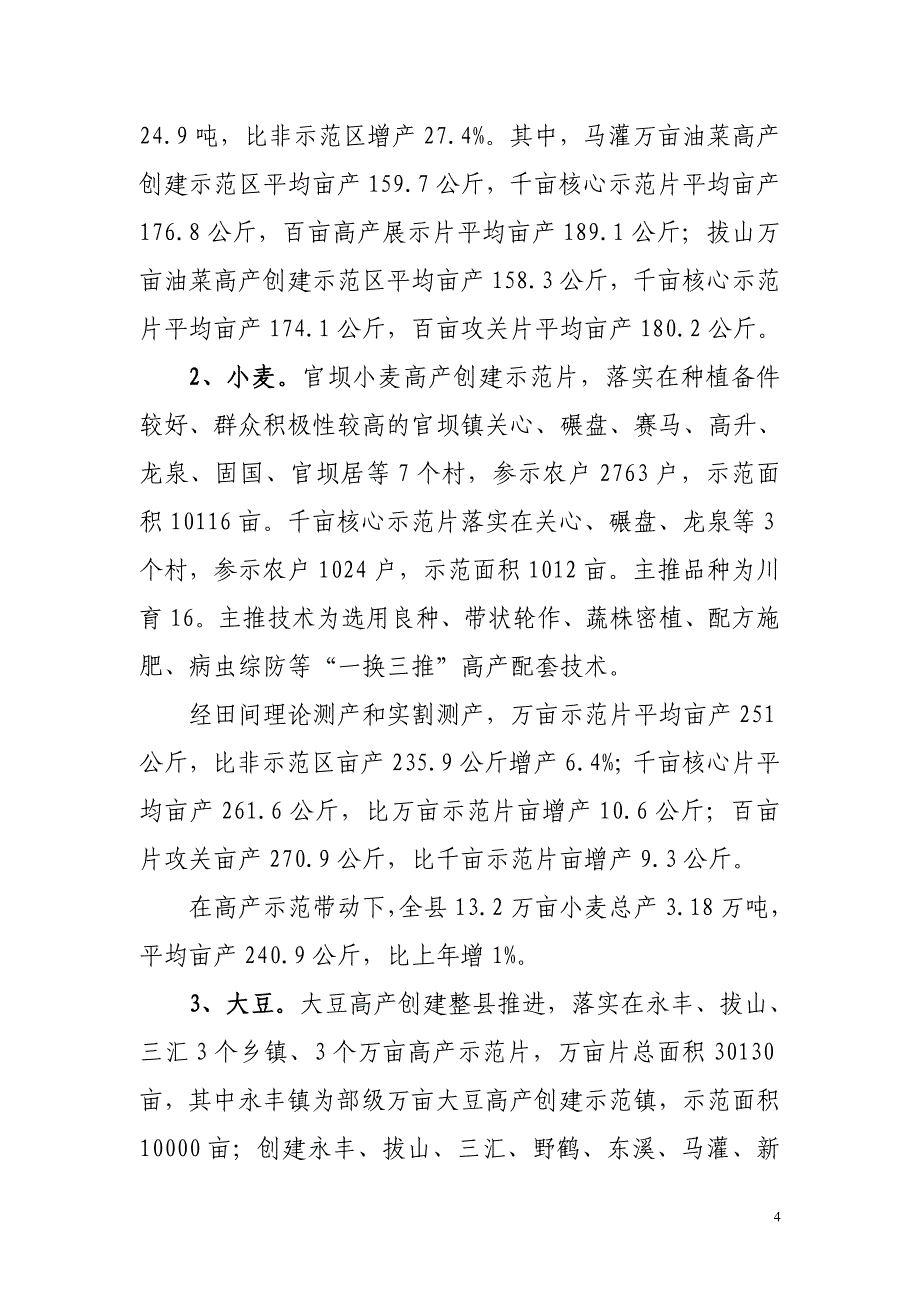 24.9 吨，比非示范区增产 27.4%。其中，马灌万亩油菜高产
创建示范区平均亩产 159.7 公斤，千亩核心示范片平均亩产
176.8 公斤，百亩高产展示片平均亩产 189.1 公斤；拔山万
亩油菜高产创建示范区平均亩产 158.3 公斤，千亩核心示范
片平均亩产 174.1 公斤，百亩攻关片平均亩产 180.2 公斤。
2、小麦。官坝小麦高产创建示范片，落实在种植备件
较好、群众积极性较高的官坝镇关心、碾盘、赛马、高升、
龙泉、固国、官坝居等 7 个村，参示农户 2763 户，示范面
积 10116 亩。千亩核心示范片落实在关心、碾盘、龙泉等 3
个村，参示农户 1024 户，示范面积 1012 亩。主推品种为川
育 16。主推技术为选用良种、带状轮作、蔬株密植、配方施
肥、病虫综防等“一换三推”高产配套技术。
经田间理论测产和实割测产，万亩示范片平均亩产 251
公斤，比非示范区亩产 235.9 公斤增产 6.4%；千亩核心片平
均亩产 261.6 公斤，比万亩示范片亩增产 10.6 公斤；百亩
片攻关亩产 270.9 公斤，比千亩示范片亩增产 9.3 公斤。
在高产示范带动下，全县 13.2 万亩小麦总产 3.18 万吨，
平均亩产 240.9 公斤，比上年增 1%。
3、大豆。大豆高产创建整县推进，落实在永丰、拔山、
三汇 3 个乡镇、3 个万亩高产示范片，万亩片总面积 30130
亩，其中永丰镇为部级万亩大豆高产创建示范镇，示范面积
10000 亩；创建永丰、拔山、三汇、野鹤、东溪、马灌、新
4